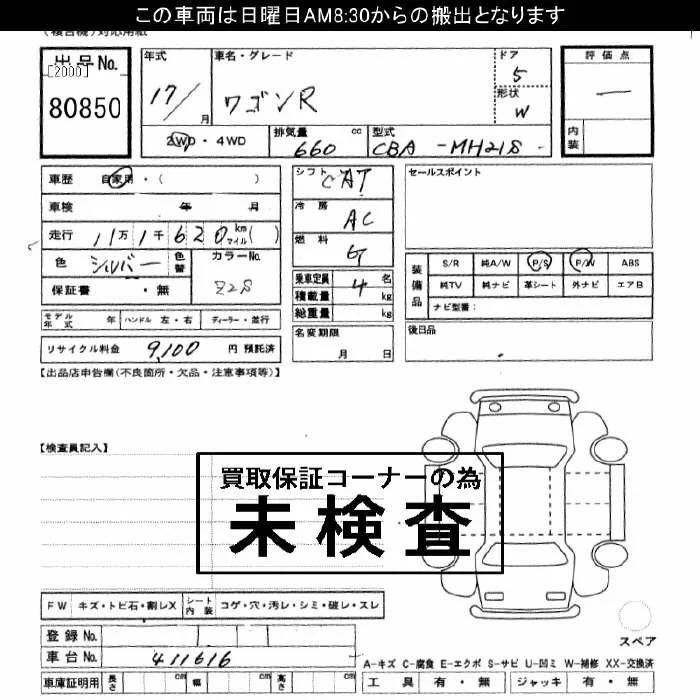 この車両は日曜日AM8:30からの搬出となります
出品No.
[2000]
80850
年式
17/
月
車名・グレード
ワゴンR
ドア
5
形状
W
評価点
―
内装
2WD・4WD
排気量
cc
660
型式
CBA -MH21S
車歴
自家用・( )
車検
年 月
走行
11万1千620
km
マイル
( )
色
シルバー
色替
カラーNo.
Z2S
保証書
・無
シフト
CAT
冷房
AC
燃料
G
乗車定員
4
名
積載量
kg
総重量
kg
セールスポイント
装備品
S/R
純A/W
P/S
P/W
ABS
純TV
純ナビ
革シート
外ナビ
エアB
ナビ型番:
モデル年式
年
ハンドル
左・右
ディーラー・並行
名変期限
月 日
後日品
リサイクル料金
9,100
円 預託済
【出品店申告欄(不良箇所・欠品・注意事項等)】
【検査員記入】
買取保証コーナーの為
未検査
FW
キズ・トビ石・割レX
シート内装
コゲ・穴・汚レ・シミ・破レ・スレ
登録No.
車台No.
411616
車庫証明用
長さ
cm
幅
cm
高さ
cm
スペア
A-キズ C-腐食 E-エクボ S-サビ U-凹ミ W-補修 XX-交換済
工具
有・無
ジャッキ
有・無